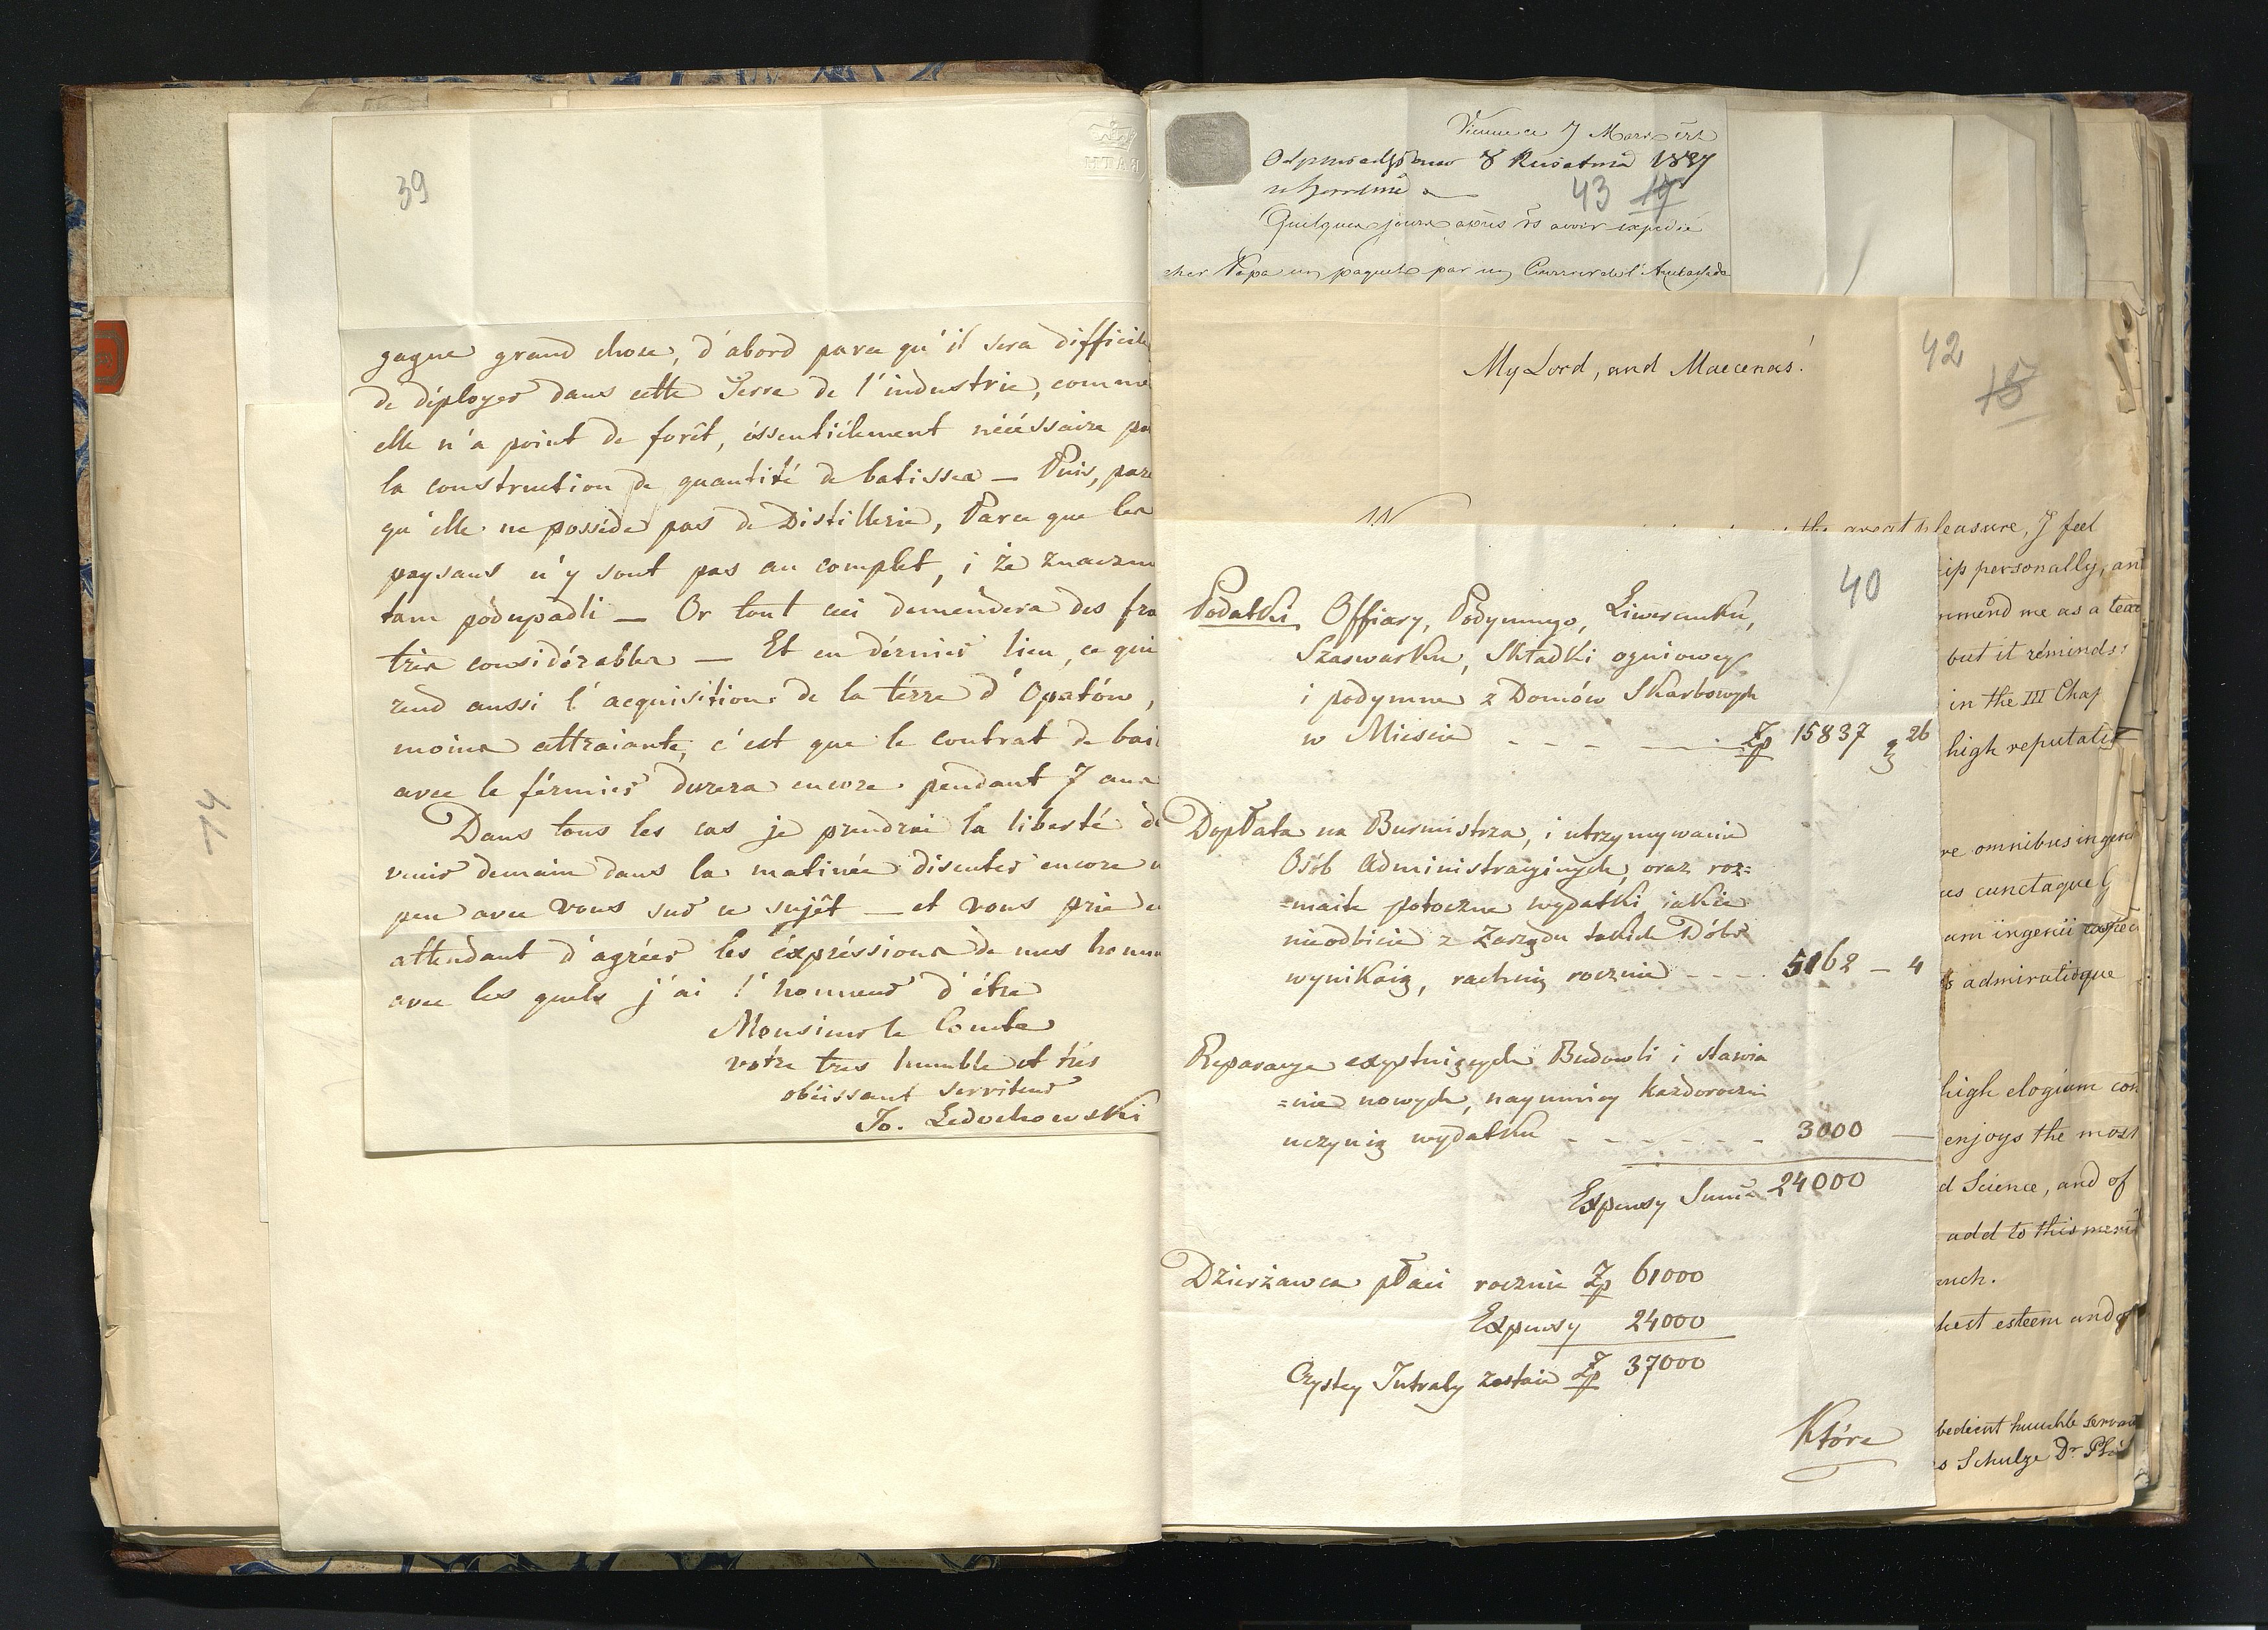 39
gagne grand chose, d'abord parce qu'il sera difficile
de déployer dans cette Terre de l'industrie, comme
elle n'a point de forêt, éssentiélement nécéssaire po
la construction de quantité de batisses — Puis, parc
qu'elle ne posséde pas de Distillerie, Parce que les
paysans n'y sont pas au complet, i że znaczn
tam podupadli — Or tout ceci demendera des fra
très considérables — Et en dérnier lieu, ce qui
rend aussi l'acquisition de la térre d'Opatów,
moins attraiante, c'est que le contrat de bail
avec le férmier durera encore pendant 7 ans
Dans tous les cas je prendrai la liberté de
venir demain dans la matinée discuter encore u
peu avec vous sur ce sujêt — et vous prie en
attendant d'agréer les éxpréssions de mes homm
avec les quels j'ai l'honneur d'être
Monsieur le Comte
votre tres humble et très
obéissant serviteur
Jo. Ledochowski
74
BATH
Vienne ce 7 Mars
Odpowiedziano 8 Kwietnia 1837
43 17
Quelques jours après vs avoir expedié
cher Papa un paquet par un Courrier de l'Ambassade
My Lord, and Maecenas!
42
15
W
the great pleasure, I feel
ip personally, and
mmend me as a teac
but it reminds
in the III Chap
high reputatio
re omnibus in gene
us cunctaque
am ingenii
s admiratioque
high elogium con
enjoys the most
d Science, and of
add to this merit
much.
hest esteem and of
bedient humble servan
s Schulze Dr. Ph
40
Podatki Offiary, Podymnego, Liwerunku,
Szarwarku, Składki ogniowey
i podymne z Domów Skarbowych
w Mieście - - - Zp 15837 g 26
Dopłata na Burmistrza, i utrzymywanie
Osób Administracyinych, oraz roz=
=maite potoczne wydatki iakie
nieodbicie z Zarządu takich Dóbr
wynikaią, rachuię rocznie - - - 5162 — 4
Reparacye exystuiących Budowli i stawia
=nie nowych, naymniey każdorocznie
uczynią wydatku - - - - - - 3000 —
Expensy Summa 24000
Dzierżawca płaci rocznie Zp 61000
Expensy 24000
Czystey Intraty zostaie Zp 37000
Które